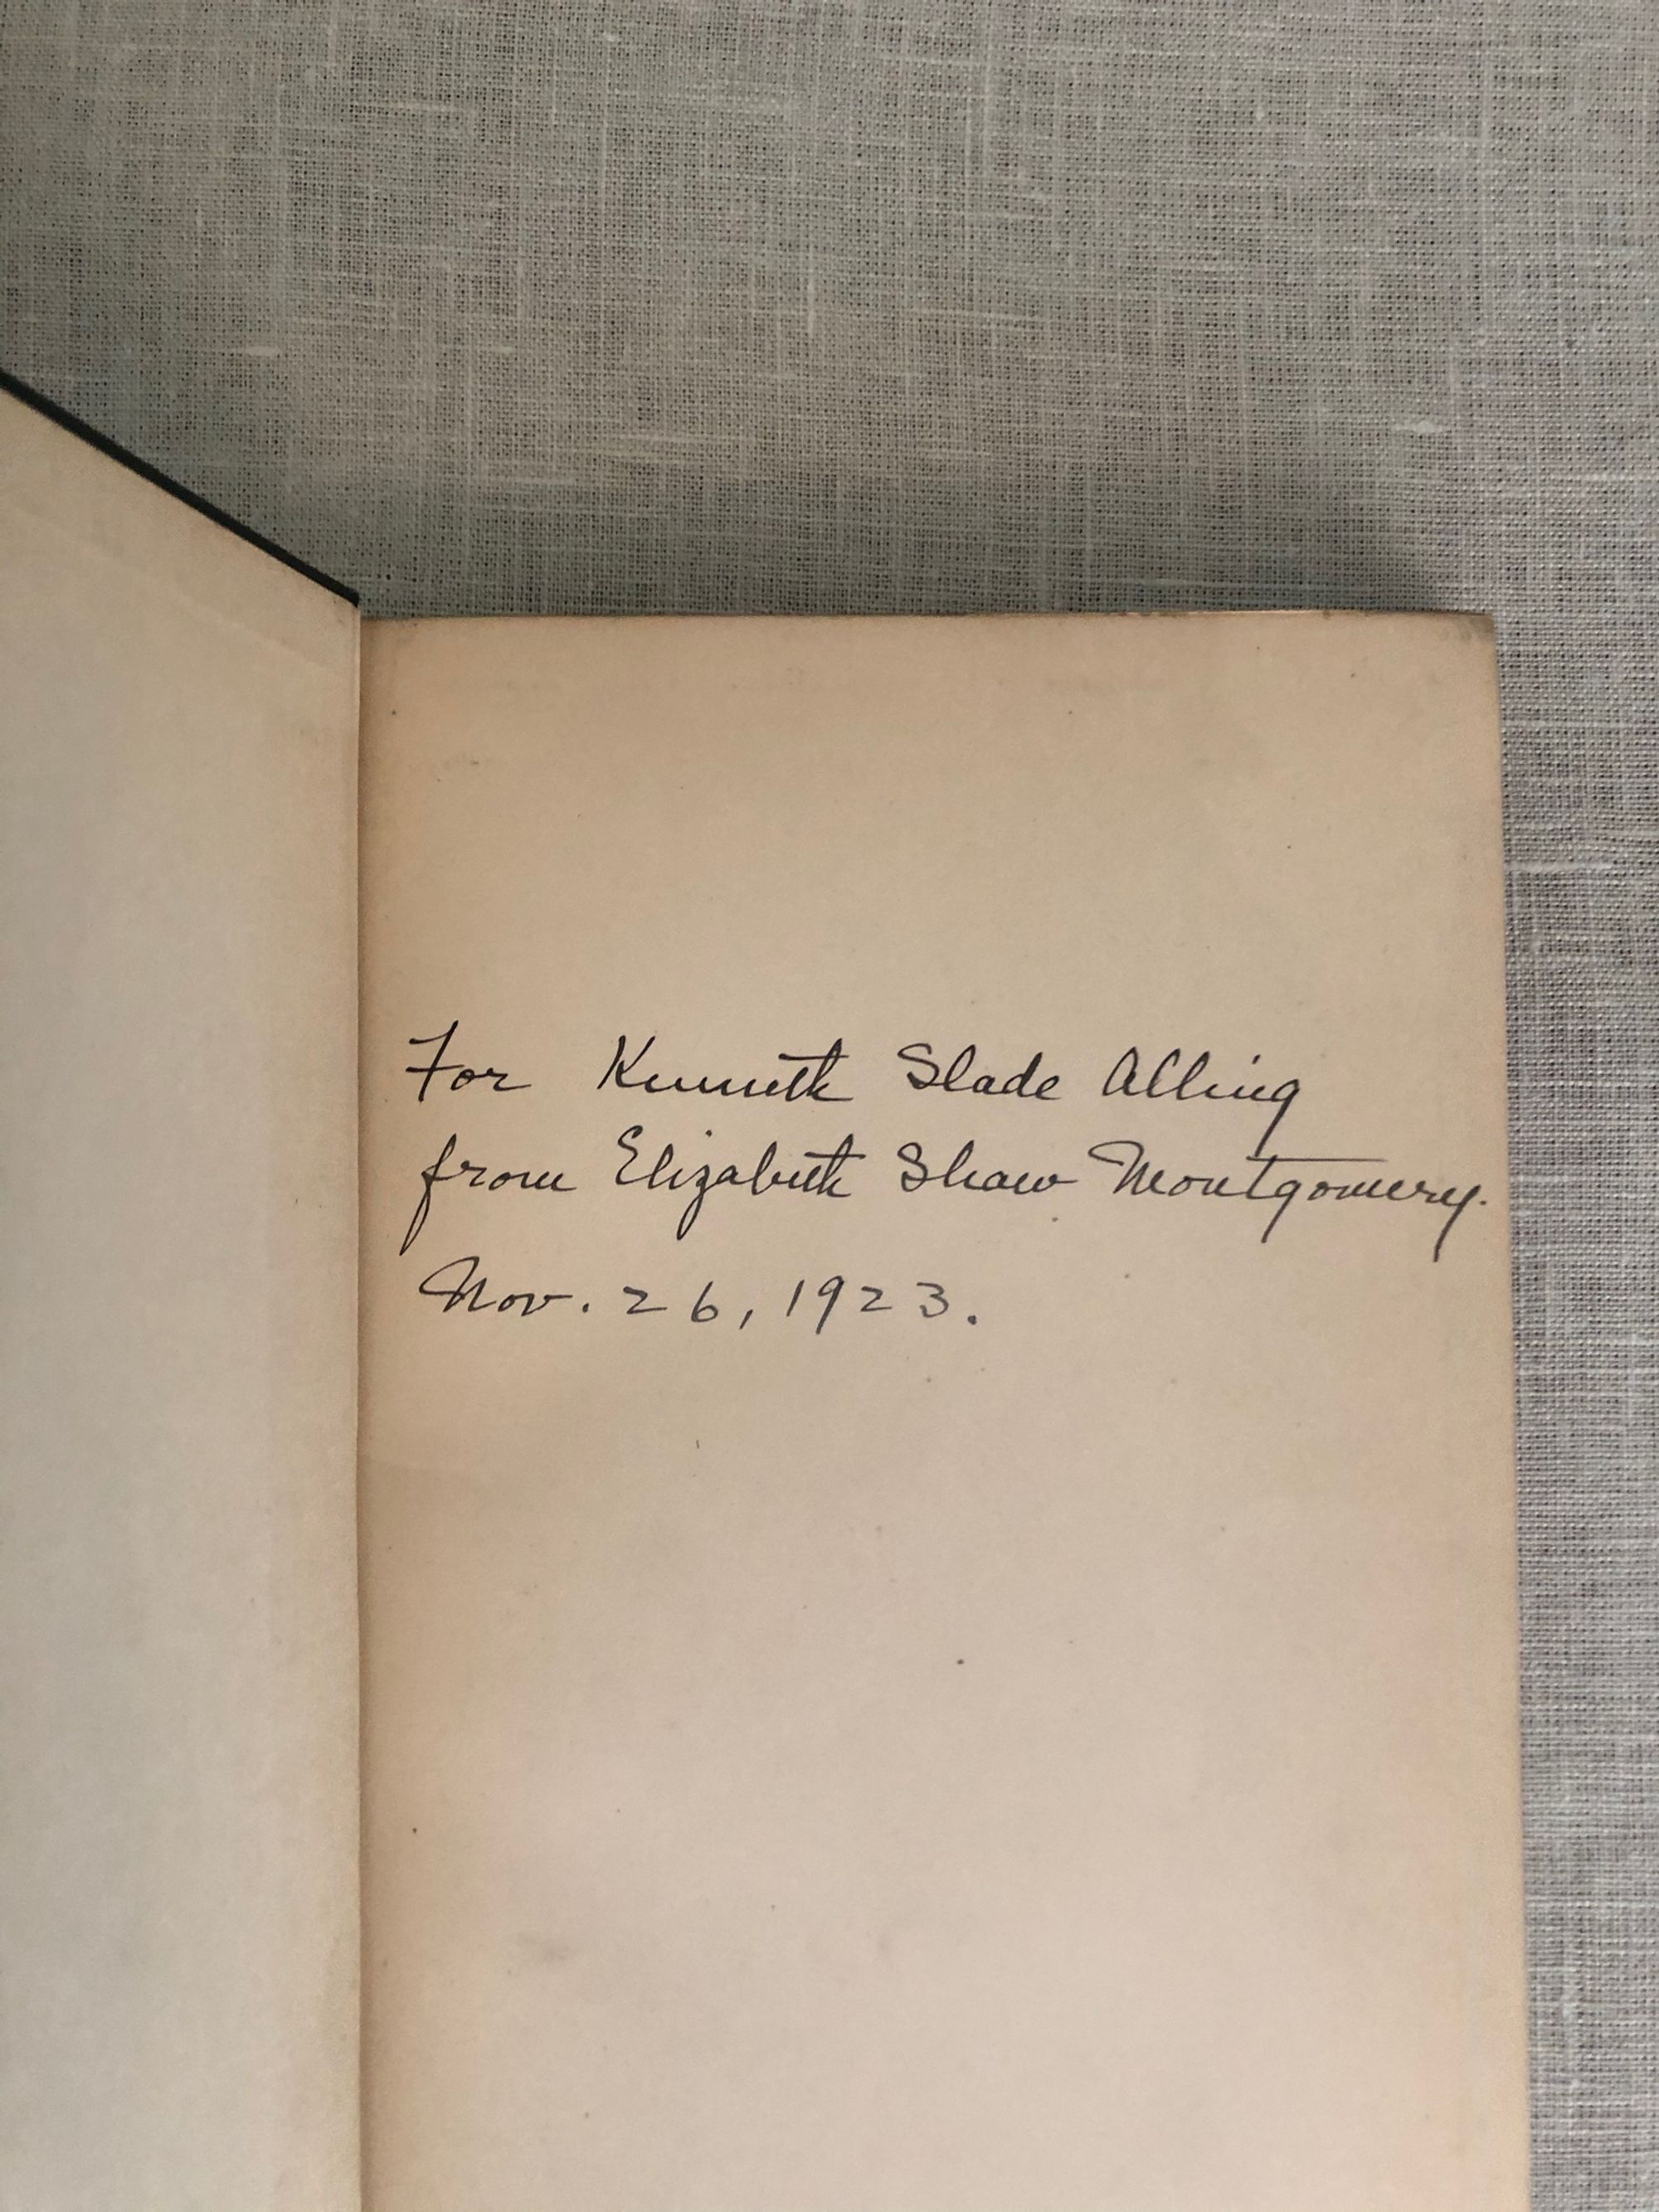 For Kenneth Slade Alling
from Elizabeth Shaw Montgomery.
Nov. 26, 1923.